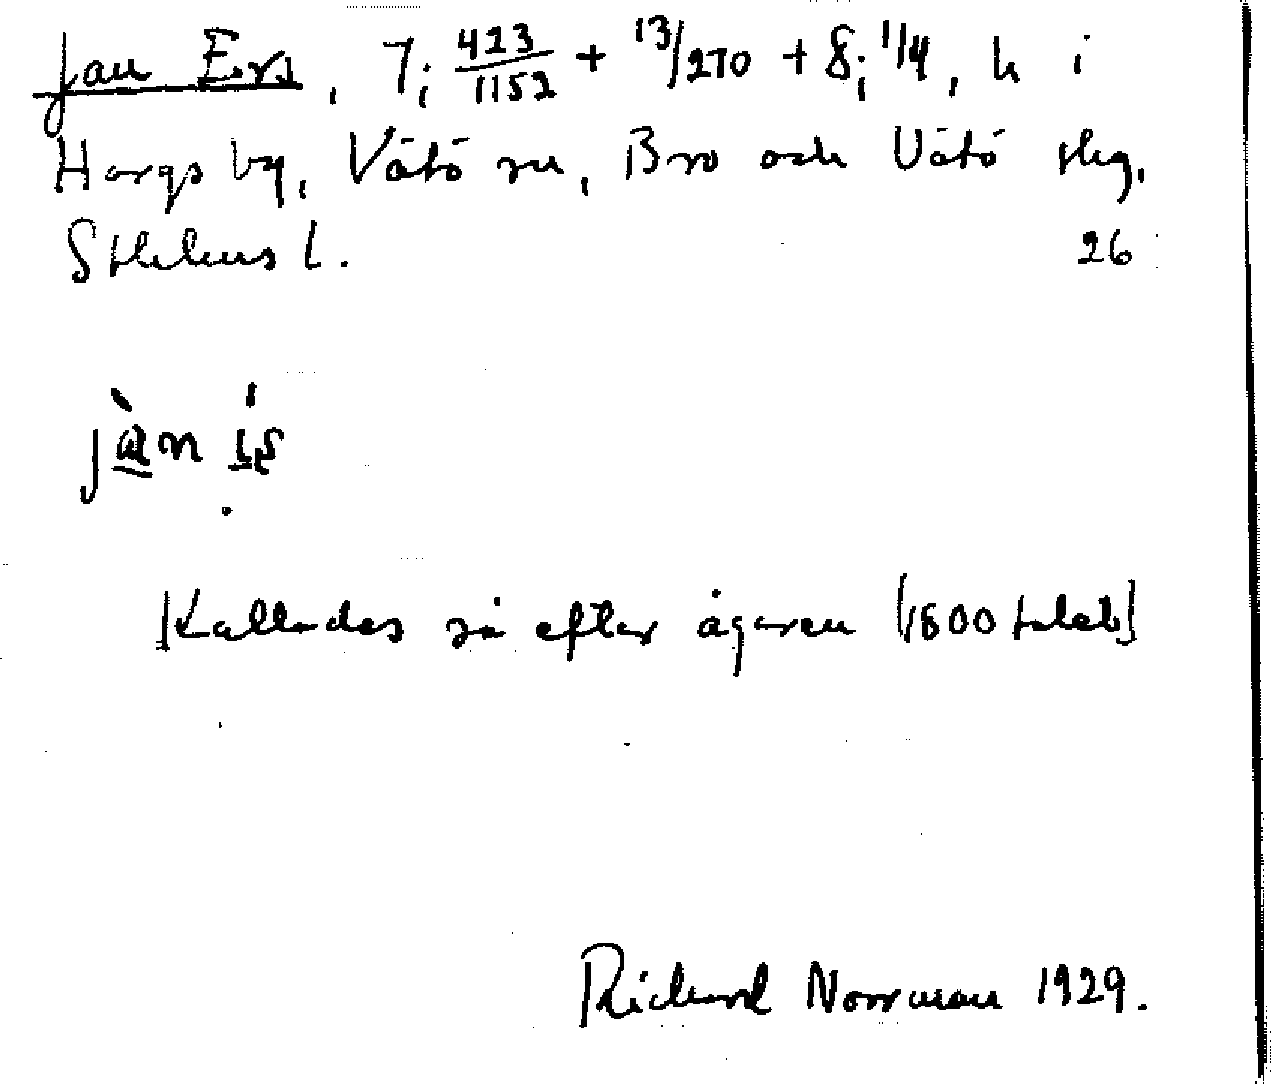 Jan Ers, 7; 423/1152 + 13/270 + 8; 1/4, h i
Hargs by, Vätö sn, Bro och Vätö skg,
Sthlms l. 26
jàn
[Kallades så efter ägaren (1800 talet)]
Richard Norrman 1929.